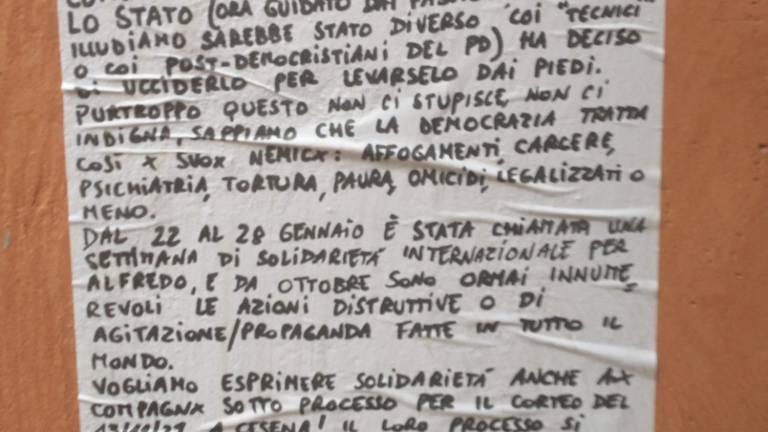 LO STATO (ORA GUIDATO DAI
ILLUDIAMO SAREBBE STATO DIVERSO COI "TECNICI"
O COI POST-DEMOCRISTIANI DEL PD) HA DECISO
DI UCCIDERLO PER LEVARSELO DAI PIEDI.
PURTROPPO QUESTO NON CI STUPISCE, NON CI
INDIGNA, SAPPIAMO CHE LA DEMOCRAZIA TRATTA
COSÌ X SUOX NEMICX: AFFOGAMENTI, CARCERE,
PSICHIATRIA, TORTURA, PAURA, OMICIDI, LEGALIZZATI O
MENO.
DAL 22 AL 28 GENNAIO È STATA CHIAMATA UNA
SETTIMANA DI SOLIDARIETÀ INTERNAZIONALE PER
ALFREDO, E DA OTTOBRE SONO ORMAI INNUME
REVOLI LE AZIONI DISTRUTTIVE O DI
AGITAZIONE/PROPAGANDA FATTE IN TUTTO IL
MONDO.
VOGLIAMO ESPRIMERE SOLIDARIETÀ ANCHE AX
COMPAGNX SOTTO PROCESSO PER IL CORTEO DEL
A CESENA! IL LORO PROCESSO SI